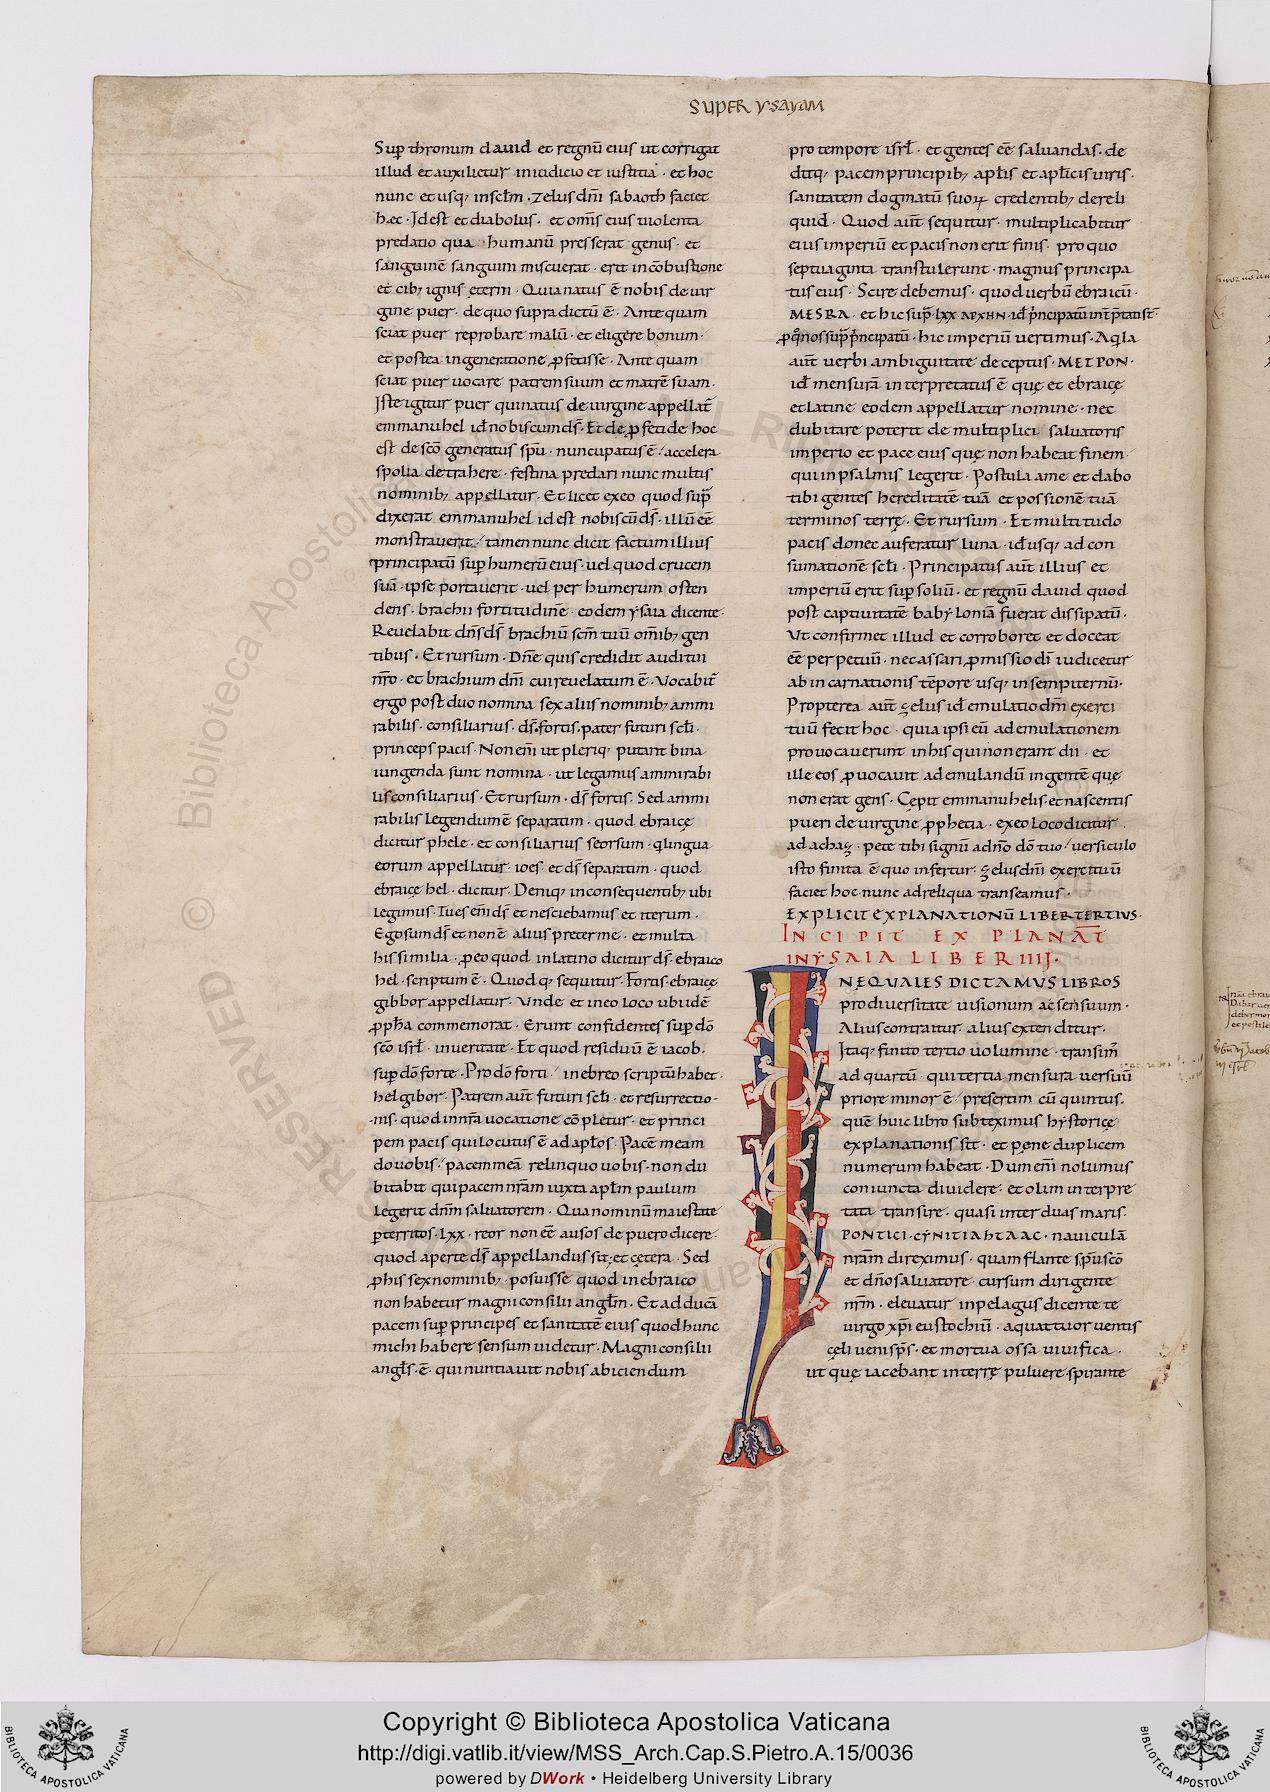 SUPER YSAYAM
Sup̄ thronum dauid et regnū eius ut corrigat
illud et auxilietur in iudicio et iustitia · et hoc
nunc et usq; in sc̄lm · zelus dn̄i sabaoth faciet
hæc · Id est et diabolus · et om̄is eius uiolenta
predatio qua humanū presserat genus · et
sanguinē sanguini miscuerat · erit in cōbustione
et cib; ignis ęterni · Quia natus ē nobis de uir
gine puer · de quo supra dictū ē · Ante quam
sciat puer reprobare malū · et eligere bonum ·
et postea in generatione ꝓfetisse · Ante quam
sciat puer uocare patrem suum et matrē suam ·
Iste igitur puer qui natus de uirgine appellat̄
emmanuhel id ē nobiscum ds̄ · Et de ꝓfetide hoc
est de sc̄o generatus sp̄u · nuncupatus ē / accelera
spolia detrahere · festina predari nunc multis
nominib; appellatur · Et licet ex eo quod sup̄
dixerat emmanuhel id est nobiscū ds̄ · illū ēē
monstrauerit / tamen nunc dicit factum illius
principatū sup̄ humerū eius · uel quod crucem
suā · ipse portauerit · uel per humerum osten
dens · brachii fortitudinē · eodem ysaia dicente ·
Reuelabit dn̄s ds̄ brachiū sc̄m tuū om̄ib; gen
tibus · Et rursum · Dn̄e quis credidit auditui
nr̄o · et brachium dn̄i cui reuelatum ē · Vocabit̄
ergo post duo nomina sex aliis nominib; ammi
rabilis · consiliarius · ds̄ · fortis · pater futuri scl̄i ·
princeps pacis · Non em̄i ut pleriq; putant bina
iungenda sunt nomina · ut legamus ammirabi
lis consiliarius · Et rursum · ds̄ fortis · Sed ammi
rabilis legendum ē separatim · quod ebraicę
dicitur phele · et consiliarius seorsum · q̄ lingua
eorum appellatur · ioes · et ds̄ separatim · quod
ebraicę hel · dicitur · Deniq; in consequentib; ubi
legimus · Tu es em̄i ds̄ et nesciebamus et iterum ·
Ego sum ds̄ et non ē alius preter me · et multa
his similia · ꝓ eo quod in latino dicitur ds̄ · ebraico
hel · scriptum ē · Quod q; sequitur · Fortis · ebraicę
gibbor appellatur · Vnde et in eo loco ubi idē
ꝓph̄a commemorat · Erunt confidentes sup̄ dō
sc̄o isrl̄ · in ueritate · Et quod residuū ē iacob ·
sup̄ dō forte · Pro dō forti / in ebreo scriptū habet ·
hel gibor · Patrem aut̄ futuri scl̄i · et resurrectio-
nis · quod in nr̄a uocatione cōpletur · et princi
pem pacis qui locutus ē ad apl̄os · Pacē meam
do uobis / pacem meā relinquo uobis · non du
bitabit qui pacem nr̄am iuxta apl̄m paulum
legerit dn̄m saluatorem · Qua nominū maiestate
p̄territos · lxx · reor non ēē ausos de puero dicere ·
quod aperte ds̄ appellandus sit · et cętera · Sed
ꝓ his sex nominib; · posuisse quod in ebraico
non habetur magni consilii angl̄m · Et adducā
pacem sup̄ principes et sanitatē eius quod hunc
michi habere sensum uidetur · Magni consilii
angl̄s · ē · qui nuntiauit nobis abiciendum
pro tempore isrl̄ · et gentes ēē saluandas · de
ditq; pacem principib; apl̄is et apl̄icis uiris ·
sanitatem dogmatū suoꝝ credentib; dereli
quid · Quod aut̄ sequitur · multiplicabitur
eius imperiū et pacis non erit finis · pro quo
septuaginta transtulerunt · magnus principa
tus eius · Scire debemus · quod uerbū ebraicū ·
MESRA · et hic sup̄ · lxx · ΑΡΧΗΝ · id ē p̄ncipatum int̄p̄tati st̄ ·
ꝓ q̄ nos sup̄ p̄ncipatū · hic imperiū uertimus · Aq̄la
aut̄ uerbi ambiguitate deceptus · METPON ·
id ē mensurā interpretatus ē quę et ebraicę
et latine eodem appellatur nomine · nec
dubitare poterit de multiplici saluatoris
imperio et pace eius quę non habeat finem ·
qui in psalmis legerit · Postula a me et dabo
tibi gentes hereditatē tuā et possionē tuā
terminos terrę · Et rursum · Et multitudo
pacis donec auferatur luna · id ē usq; ad con
sumationē scl̄i · Principatus aut̄ illius et
imperiū erit sup̄ soliū · et regnū dauid quod
post captiuitatē babyloniā fuerat dissipatū ·
Vt confirmet illud et corroboret et doceat
ēē perpetuū · nec assari ꝓmissio dī iudicetur
ab incarnationis tēpore usq; in sempiternū ·
Propterea aut̄ ȩelus id ē emulatio dn̄i exerci
tuū fecit hoc · quia ipsi eū ad emulationem
prouocauerunt in his qui non erant dii · et
ille eos ꝓuocauit ad emulandū in gentē quę
non erat gens · Cępit emmanuhelis · et nascentis
pueri de uirgine ꝓphetia · ex eo loco dicitur
ad achaȩ · pete tibi signū a dn̄o dō tuo / uersiculo
isto finita ē quo infertur · ȩelus dn̄i exercituū
faciet hoc · nunc ad reliqua transeamus ·
EXPLICIT EXPLANATIONŪ LIBER TERTIVS ·
INCIPIT EXPLANAT̄
IN YSAIA LIBER IIII ·
INEQUALES DICTAMVS LIBROS
pro diuersitate uisionum ac sensuum ·
Alius contraitur · alius extenditur ·
Itaq; finito tertio uolumine · transim̄
ad quartū · qui tertia mensura uersuū
priore minor ē · presertim cū quintus ·
quē huic libro subteximus hystoricę
explanationis sit · et pęne duplicem
numerum habeat · Dum em̄i nolumus
coniuncta diuidere · et olim interpre
tata transire · quasi inter duas maris ·
PONTICI · CYNITIAHTAAC · nauiculā
nr̄am direximus · quam flante sp̄u sc̄o
et dn̄o saluatore · cursum dirigente
nr̄m · eleuatur in pelagus dicente te
uirgo xp̄i eustochiū · a quattuor uentis
cęli ueni sp̄s · et mortua ossa uiuifica ·
ut quę iacebant in terrę puluere · spirante
RESERVED © Biblioteca Apostolica Vaticana
Copyright © Biblioteca Apostolica Vaticana
http://digi.vatlib.it/view/MSS_Arch.Cap.S.Pietro.A.15/0036
powered by DWork • Heidelberg University Library
BIBLIOTECA APOSTOLICA VATICANA
BIBLIOTECA APOSTOLICA VATICANA